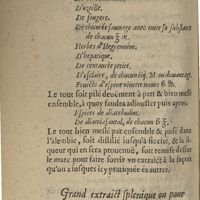 D'ozeille.
De fougere.
De chicorée sauvage avec toute sa substance
de chacun ℥ iij.
Herbes d'Hegremoine.
D'hepatique.
De centaurée petite.
D'esclaire, de chacun iiij. M. ou davantage.
Fruicts d'espine vinette meurs ℔ ij.
Le tout soit pilé deuëment à part & bien mesl
ensemble, à quoy faudra adiouster puis apres
Espices de diarrhodon.
De diatriasantal, de chacun ℥.
Le tout bien meslé par ensemble & posé dans
l'alembic, soit distillé iusqu'à siccité, & la li
queur qui en sera prouenuë, soit remise dessus
le marc pour faire sortir vn extraict à la façon
qu'on a iusques icy pratiquée es autres.
Grand extraict splenique ou pour